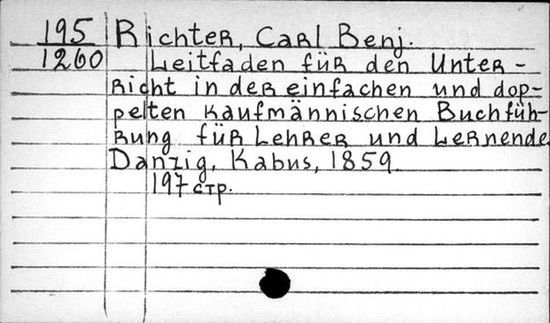 195 Richter, Carl Benj.
1260 Leitfaden für den Unter-
richt in der einfachen und dop-
pelten kaufmännischen Buchfüh-
rung für Lehrer und Lernende.
Danzig, Kabus, 1859.
197 стр.